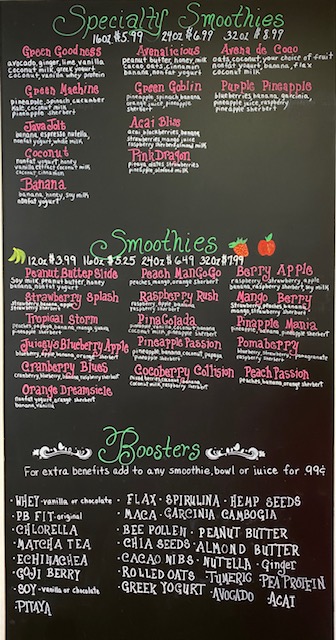 Specialty Smoothies
16oz $5.99 24oz 6.99 32oz 8.99
Green Goodness
avocado, ginger, lime, vanilla
coconut milk, greek yogurt
coconut, vanilla whey protein
Green Machine
pineapple, spinach, cucumber
kale, coconut milk
pineapple sherbert
Java Jolt
banana, espresso, nutella,
nonfat yogurt, whole milk
Coconut
nonfat yogurt, honey
vanilla extract, coconut milk
coconut, cinnamon
Banana
banana, honey, soy milk
nonfat yogurt
Avenalicious
peanut butter, honey, milk
cacao, oats, cinnamon
banana, nonfat yogurt
Green Goblin
pineapple, spinach, banana
orange juice, pineapple
sherbert
Acai Bliss
acai, blackberries, banana
strawberries, mango juice
raspberry sherbert, almond milk
Pink Dragon
pitaya, dates, strawberries
pineapple, almond milk
Avena de Coco
oats, coconut, your choice of fruit
nonfat yogurt, banana, flax
coconut milk
Purple Pineapple
blackberries, banana, garcinia,
pineapple juice, raspberry
pineapple sherbert
Smoothies
12oz $3.99 16oz $5.25 24oz $6.49 32oz 7.99
Peanut Butter Blide
Soy milk, peanut butter, honey
banana, nonfat yogurt
Strawberry Splash
strawberry, banana, apple
strawberry sherbert
Tropical Storm
peaches, papaya, banana, mango, guava,
pineapple sherbert
Juiceys Blueberry Apple
blueberry, apple, banana, orange sherbert
Cranberry Blues
cranberry, blueberry, banana, raspberry sherbert
Orange Dreamsicle
nonfat yogurt, orange sherbert
banana, vanilla
Peach ManGoGo
peaches, mango, orange sherbert
Raspberry Rush
raspberry, apple, banana
raspberry sherbert
Pina Colada
pineapple, vanilla, coconut, banana
coconut milk, pineapple sherbert
Pineapple Passion
pineapple, banana, coconut, papaya
pineapple sherbert
Cocoberry Collision
mixed berries, coconut, banana
coconut milk, raspberry sherbert
Berry Apple
raspberry, strawberry, apple
banana, raspberry sherbert, soy milk
Mango Berry
Strawberry, peaches, banana,
mango, strawberry sherbert
Pinapple Mania
pineapple, banana, strawberry
pineapple sherbert
Pomaberry
blueberry, strawberry, pomegranate
raspberry sherbert
Peach Passion
peaches, banana, orange sherbert
Boosters
For extra benefits add to any smoothie, bowl or juice for .99¢
· WHEY - vanilla or chocolate
· PB FIT - original
· CHLORELLA
· MATCHA TEA
· ECHINACHEA
· GOJI BERRY
· SOY - vanilla or chocolate
· PITAYA
· FLAX · SPIRULINA · HEMP SEEDS
· MACA · GARCINIA CAMBOGIA
· BEE POLLEN · PEANUT BUTTER
· CHIA SEEDS · ALMOND BUTTER
· CACAO NIBS · NUTELLA · Ginger
· ROLLED OATS · TUMERIC · PEA PROTEIN
· GREEK YOGURT · AVOCADO · ACAI